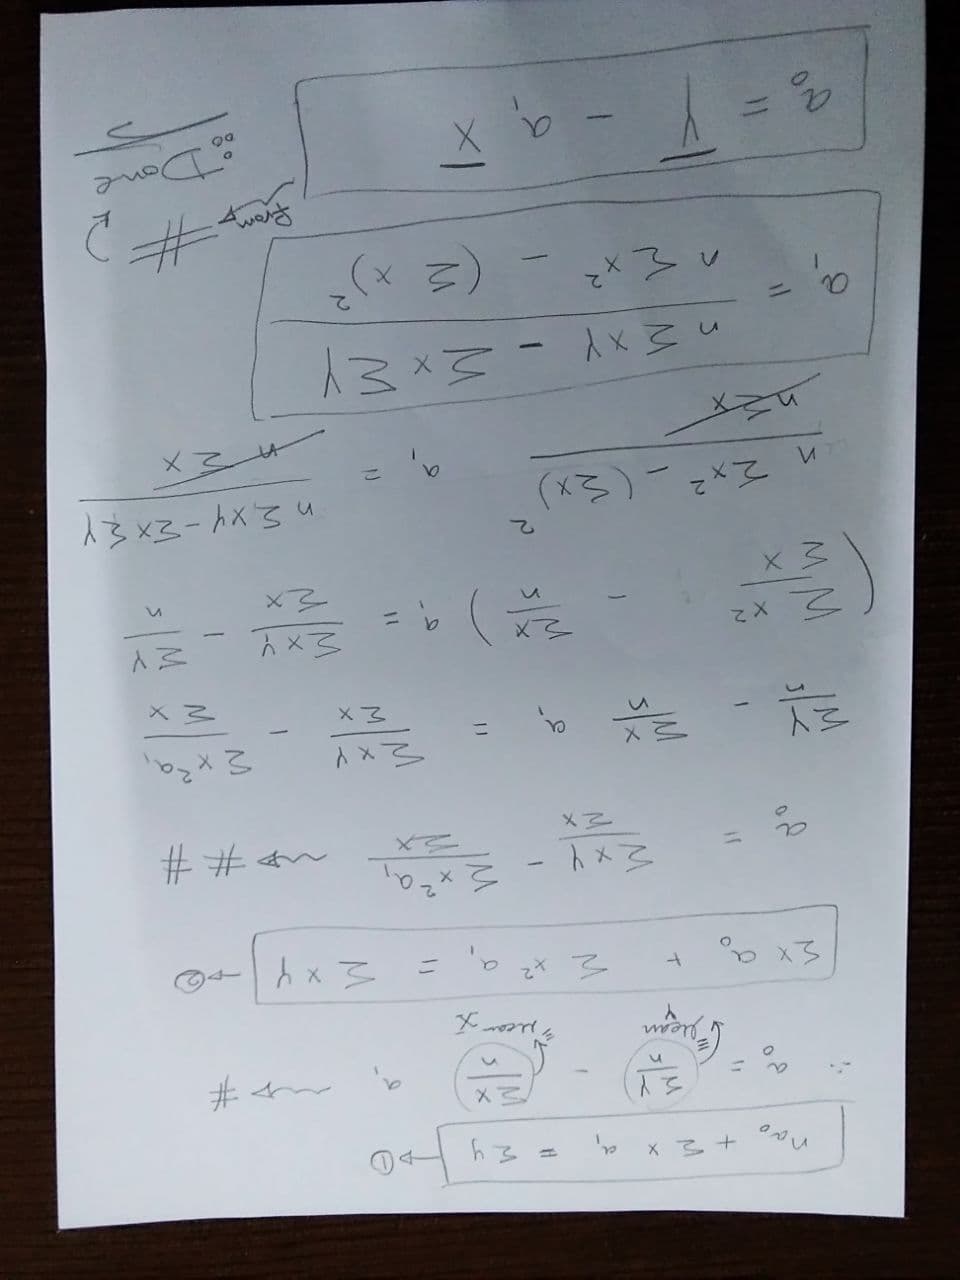 na₀ + Σ x a₁ = Σ y → ①
∴ a₀ = ΣY/n - Σx/n a₁ ⇝ #
≡ Mean Y ≡ Mean X̄
Σx a₀ + Σ x² a₁ = Σ x Y → ②
a₀ = ΣxY/Σx - Σx²a₁/Σx ⇝ # #
ΣY/n - Σx/n a₁ = ΣxY/Σx - Σx²a₁/Σx
(Σx²/Σx - Σx/n) a₁ = ΣxY/Σx - ΣY/n
(n Σx² - (Σx)²)/(nΣx) a₁ = (nΣxY - ΣxΣY)/(nΣx)
a₁ = (nΣxY - ΣxΣY)/(nΣx² - (Σx)²)
from → #
a₀ = Ȳ - a₁ X̄
Done